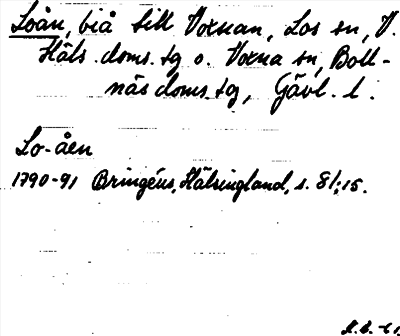 Loån, biå till Voxnan, Los sn, V.
Häls. doms. tg o. Voxna sn, Boll-
näs doms. tg, Gävl. l.
Lo-åen
1790-91 Bringéus, Hälsingland, s. 81; 15.